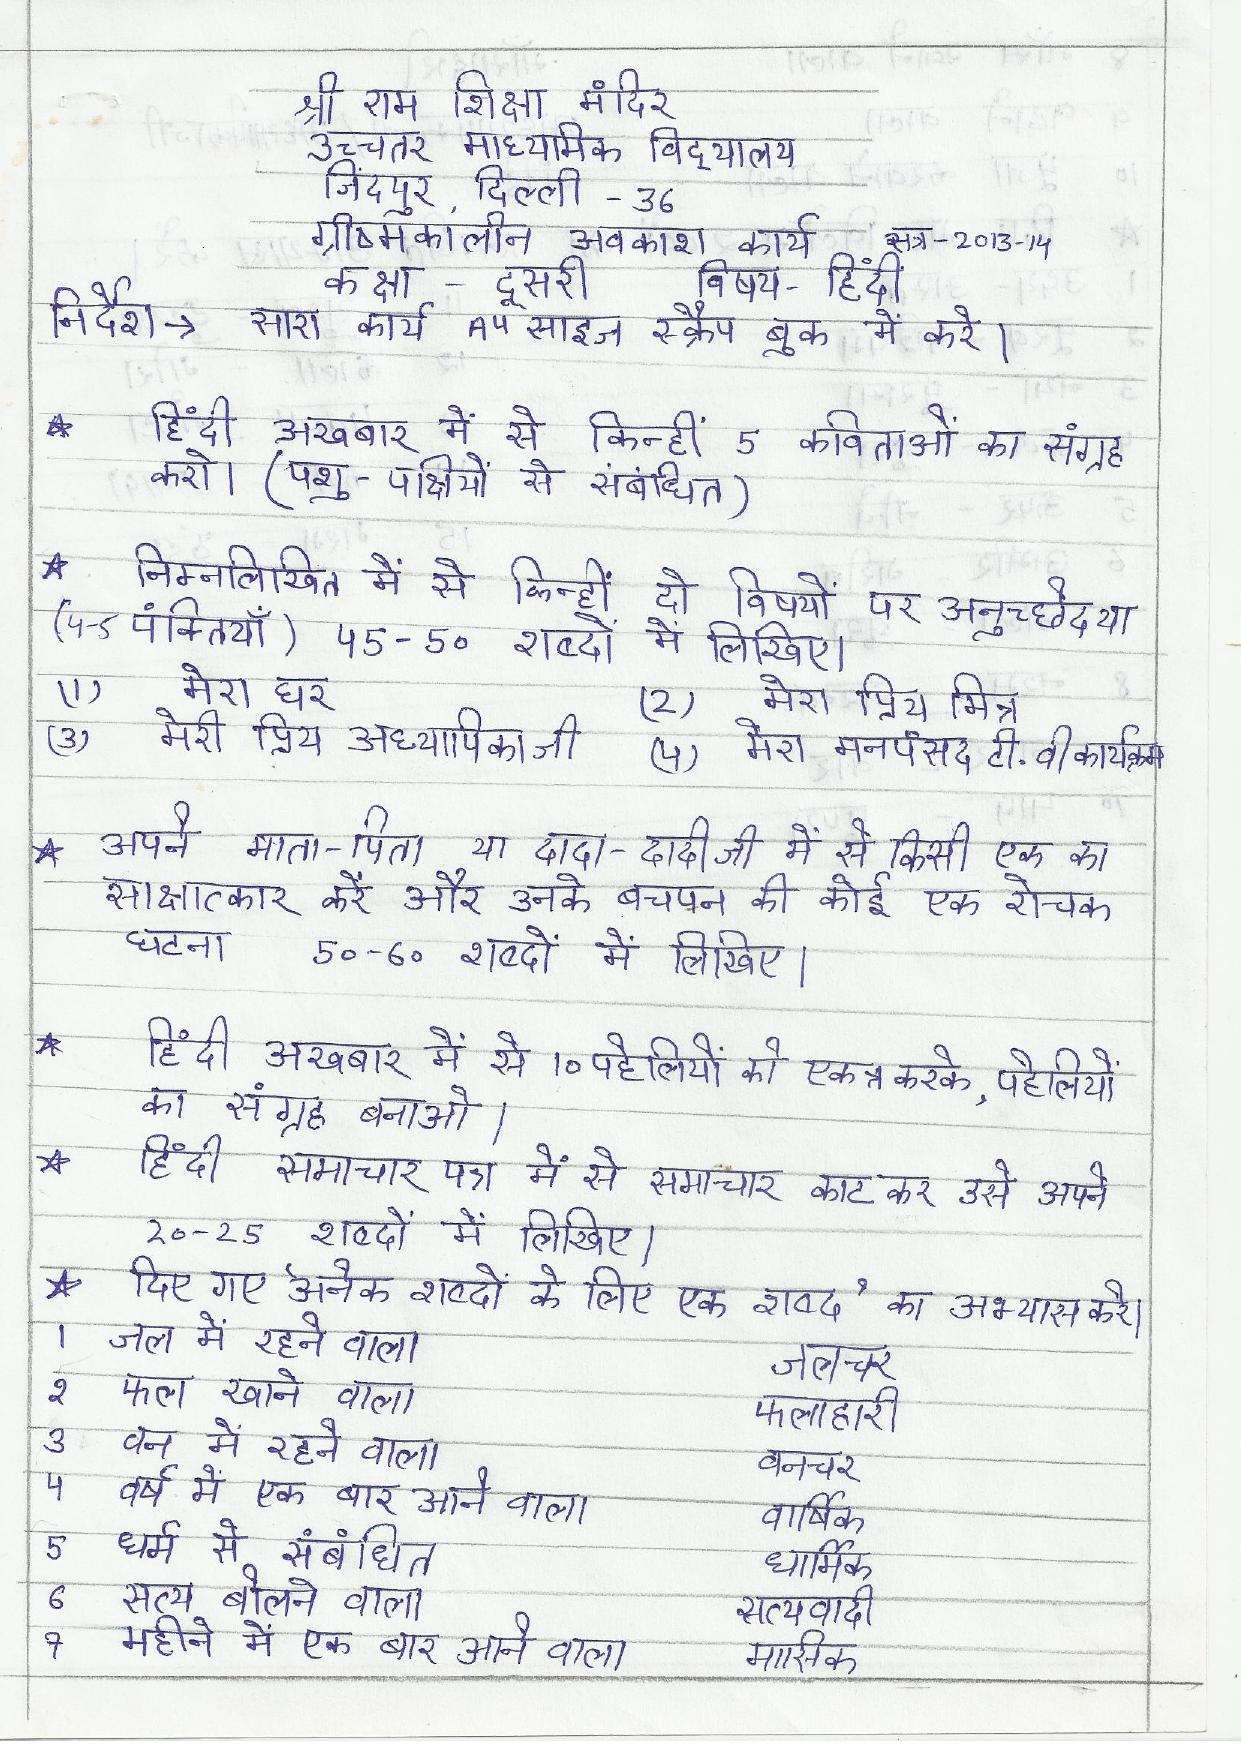 श्री राम शिक्षा मंदिर
उच्चतर माध्यमिक विद्यालय
जिंदपुर, दिल्ली - 36
ग्रीष्मकालीन अवकाश कार्य सत्र-2013-14
कक्षा - दूसरी विषय- हिंदी
निर्देश→ सारा कार्य A4 साइज स्क्रैप बुक में करे।
★ हिंदी अखबार में से किन्हीं 5 कविताओं का संग्रह
करो। (पशु-पक्षियों से संबंधित)
★ निम्नलिखित में से किन्हीं दो विषयों पर अनुच्छेद या
(4-5 पंक्तियाँ) 45-50 शब्दों में लिखिए।
(1) मेरा घर (2) मेरा प्रिय मित्र
(3) मेरी प्रिय अध्यापिका जी (4) मेरा मनपंसद टी.वी कार्यक्रम
★ अपने माता-पिता या दादा-दादी जी में से किसी एक का
साक्षात्कार करें और उनके बचपन की कोई एक रोचक
घटना 50-60 शब्दों में लिखिए।
★ हिंदी अखबार में से 10 पहेलियों को एकत्र करके, पहेलियों
का संग्रह बनाओ।
★ हिंदी समाचार पत्र में से समाचार काट कर उसे अपने
20-25 शब्दों में लिखिए।
★ दिए गए 'अनेक शब्दों के लिए एक शब्द' का अभ्यास करे।
1 जल में रहने वाला जलचर
2 फल खाने वाला फलाहारी
3 वन में रहने वाला वनचर
4 वर्ष में एक बार आने वाला वार्षिक
5 धर्म से संबंधित धार्मिक
6 सत्य बोलने वाला सत्यवादी
7 महीने में एक बार आने वाला मासिक